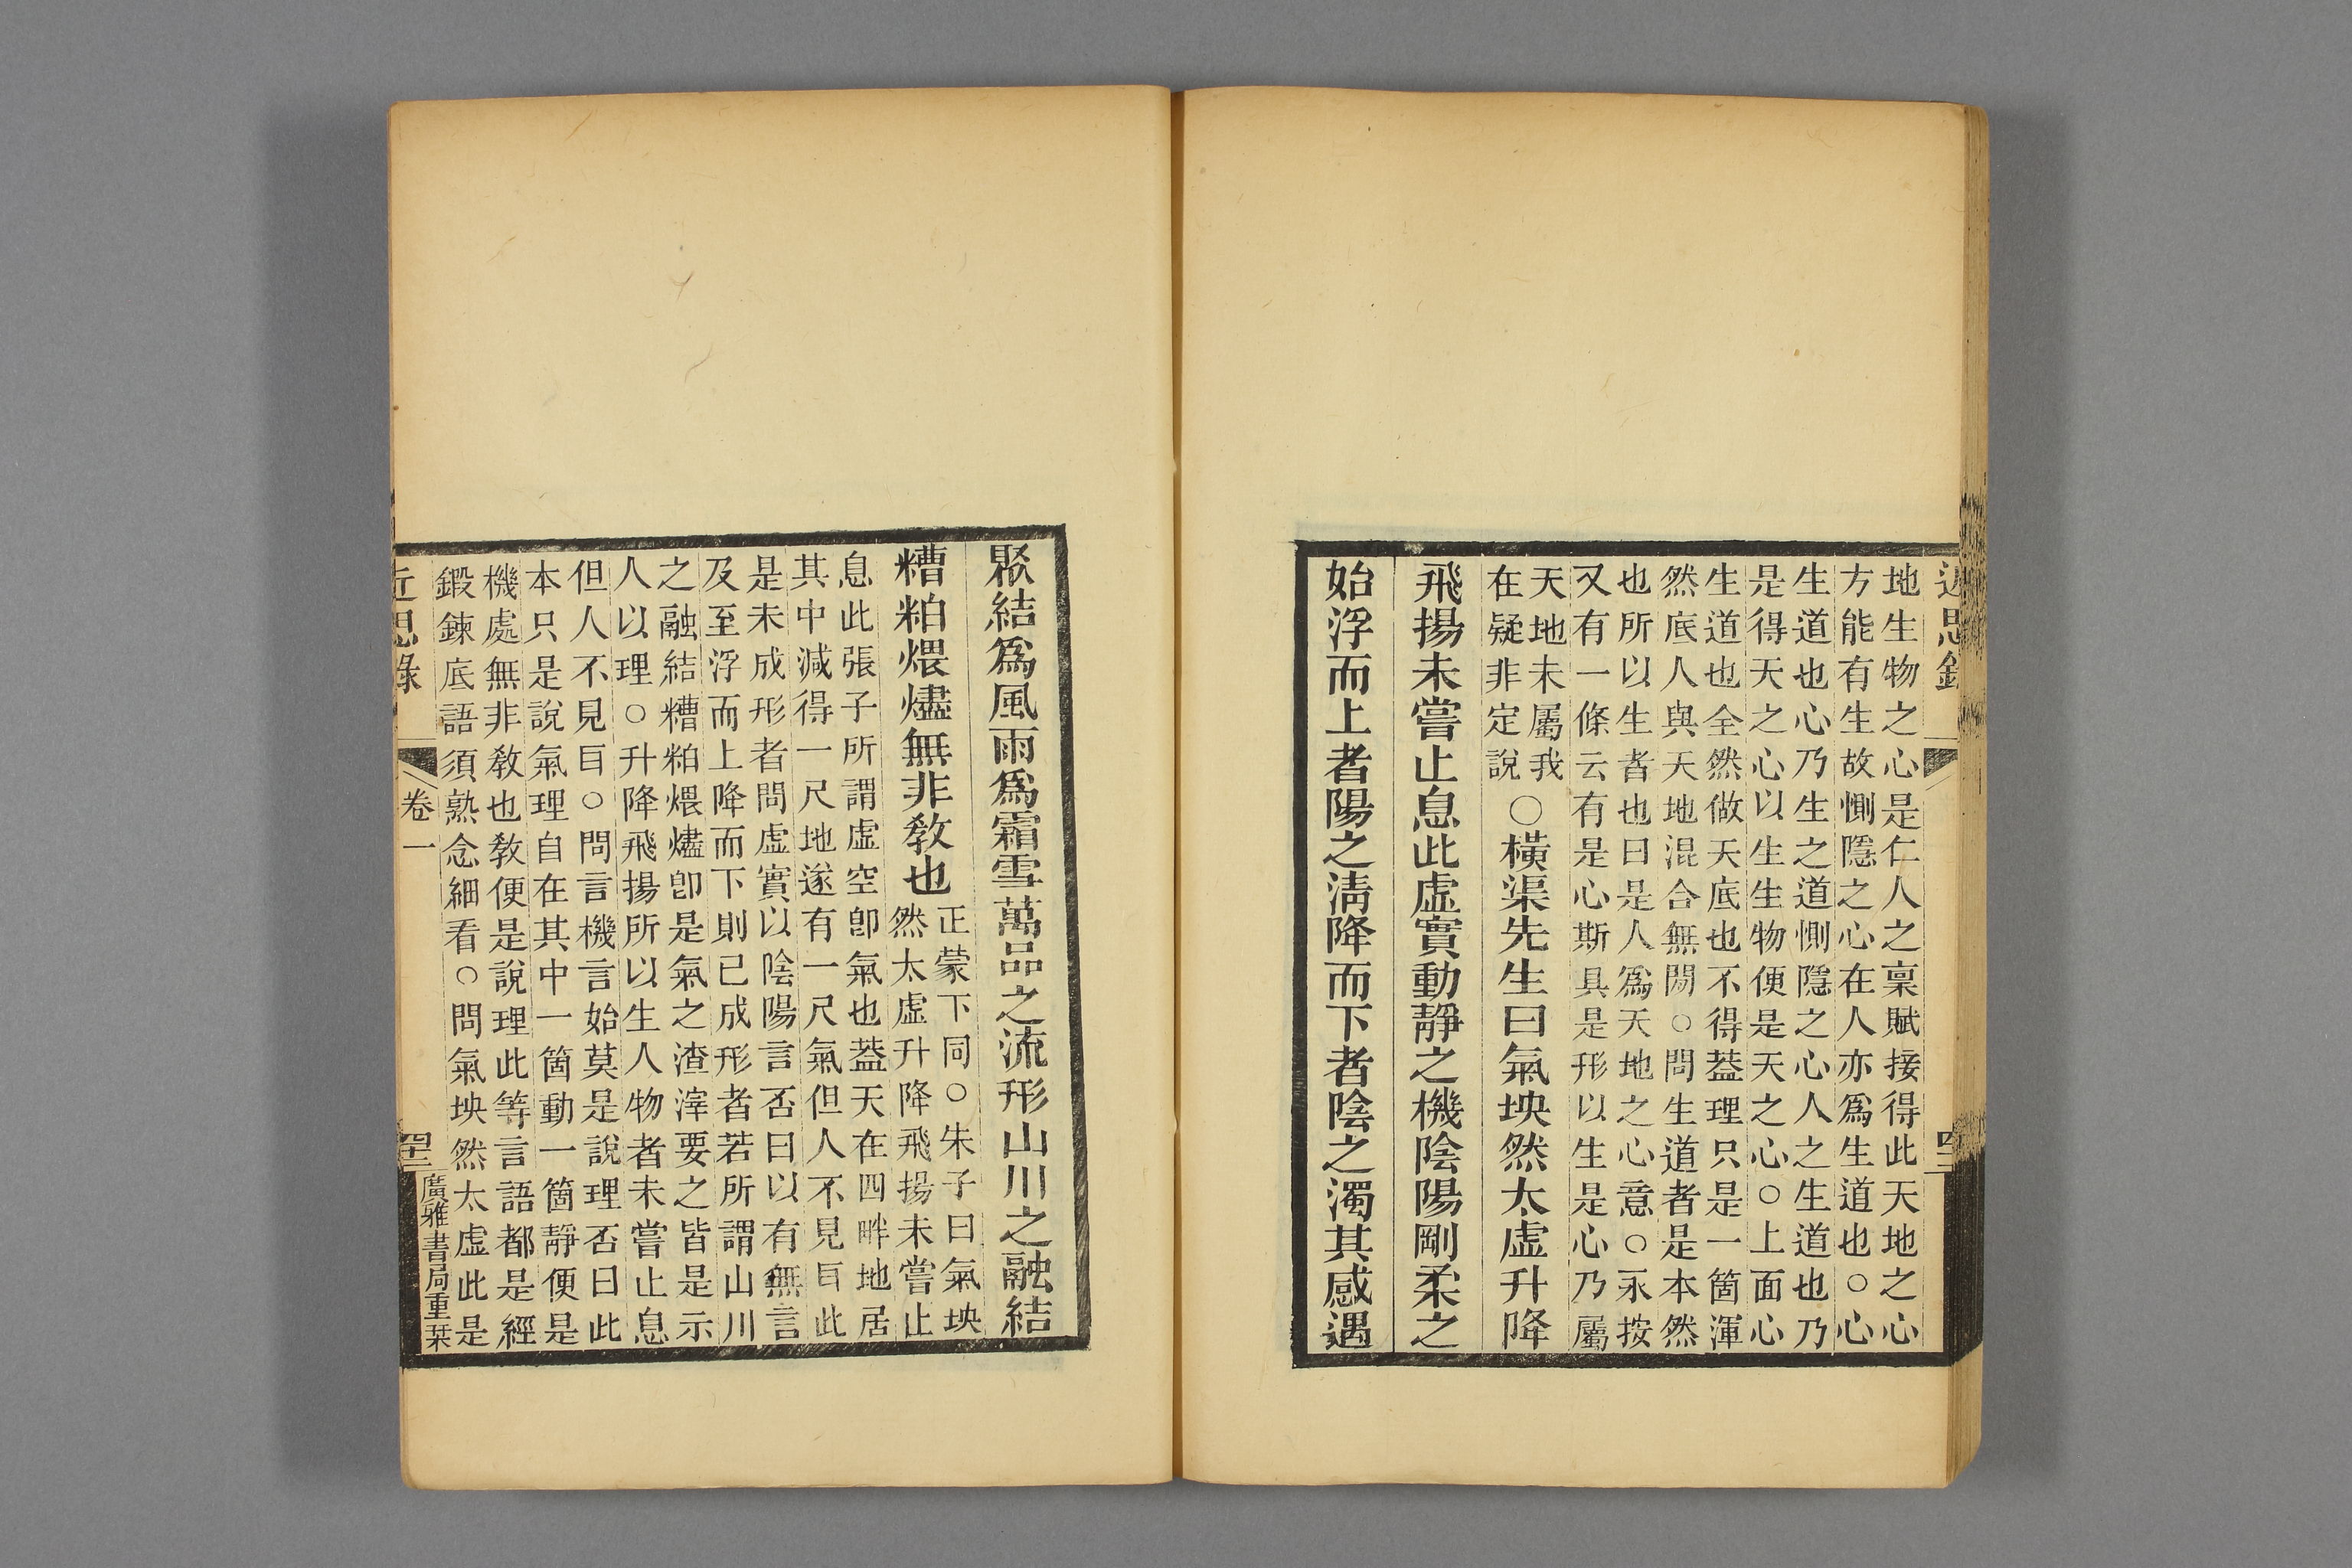 近思錄
地生物之心是仁人之稟賦接得此天地之心
方能有生故惻隱之心在人亦爲生道也○心
生道也心乃生之道惻隱之心人之生道也乃
是得天之心以生生物便是天之心○上面心
生道也全然做天底也不得葢理只是一箇渾
然底人與天地混合無閒○問生道者是本然
也所以生者也曰是人爲天地之心意○永按
又有一條云有是心斯具是形以生是心乃屬
天地未屬我
在疑非定說
○橫渠先生曰氣坱然太虛升降
飛揚未嘗止息此虛實動靜之機陰陽剛柔之
始浮而上者陽之淸降而下者陰之濁其感遇
聚結爲風雨爲霜雪萬品之流形山川之融結
糟粕煨燼無非敎也
正蒙下同○朱子曰氣坱
然太虛升降飛揚未嘗止
息此張子所謂虛空卽氣也葢天在四畔地居
其中減得一尺地遂有一尺氣但人不見耳此
是未成形者問虛實以陰陽言否曰以有無言
及至浮而上降而下則已成形者若所謂山川
之融結糟粕煨燼卽是氣之渣滓要之皆是示
人以理○升降飛揚所以生人物者未嘗止息
但人不見耳○問言機言始莫是說理否曰此
本只是說氣理自在其中一箇動一箇靜便是
機處無非敎也敎便是說理此等言語都是經
鍛鍊底語須熟念細看○問氣坱然太虛此是
近思錄
卷一
廣雅書局重栞